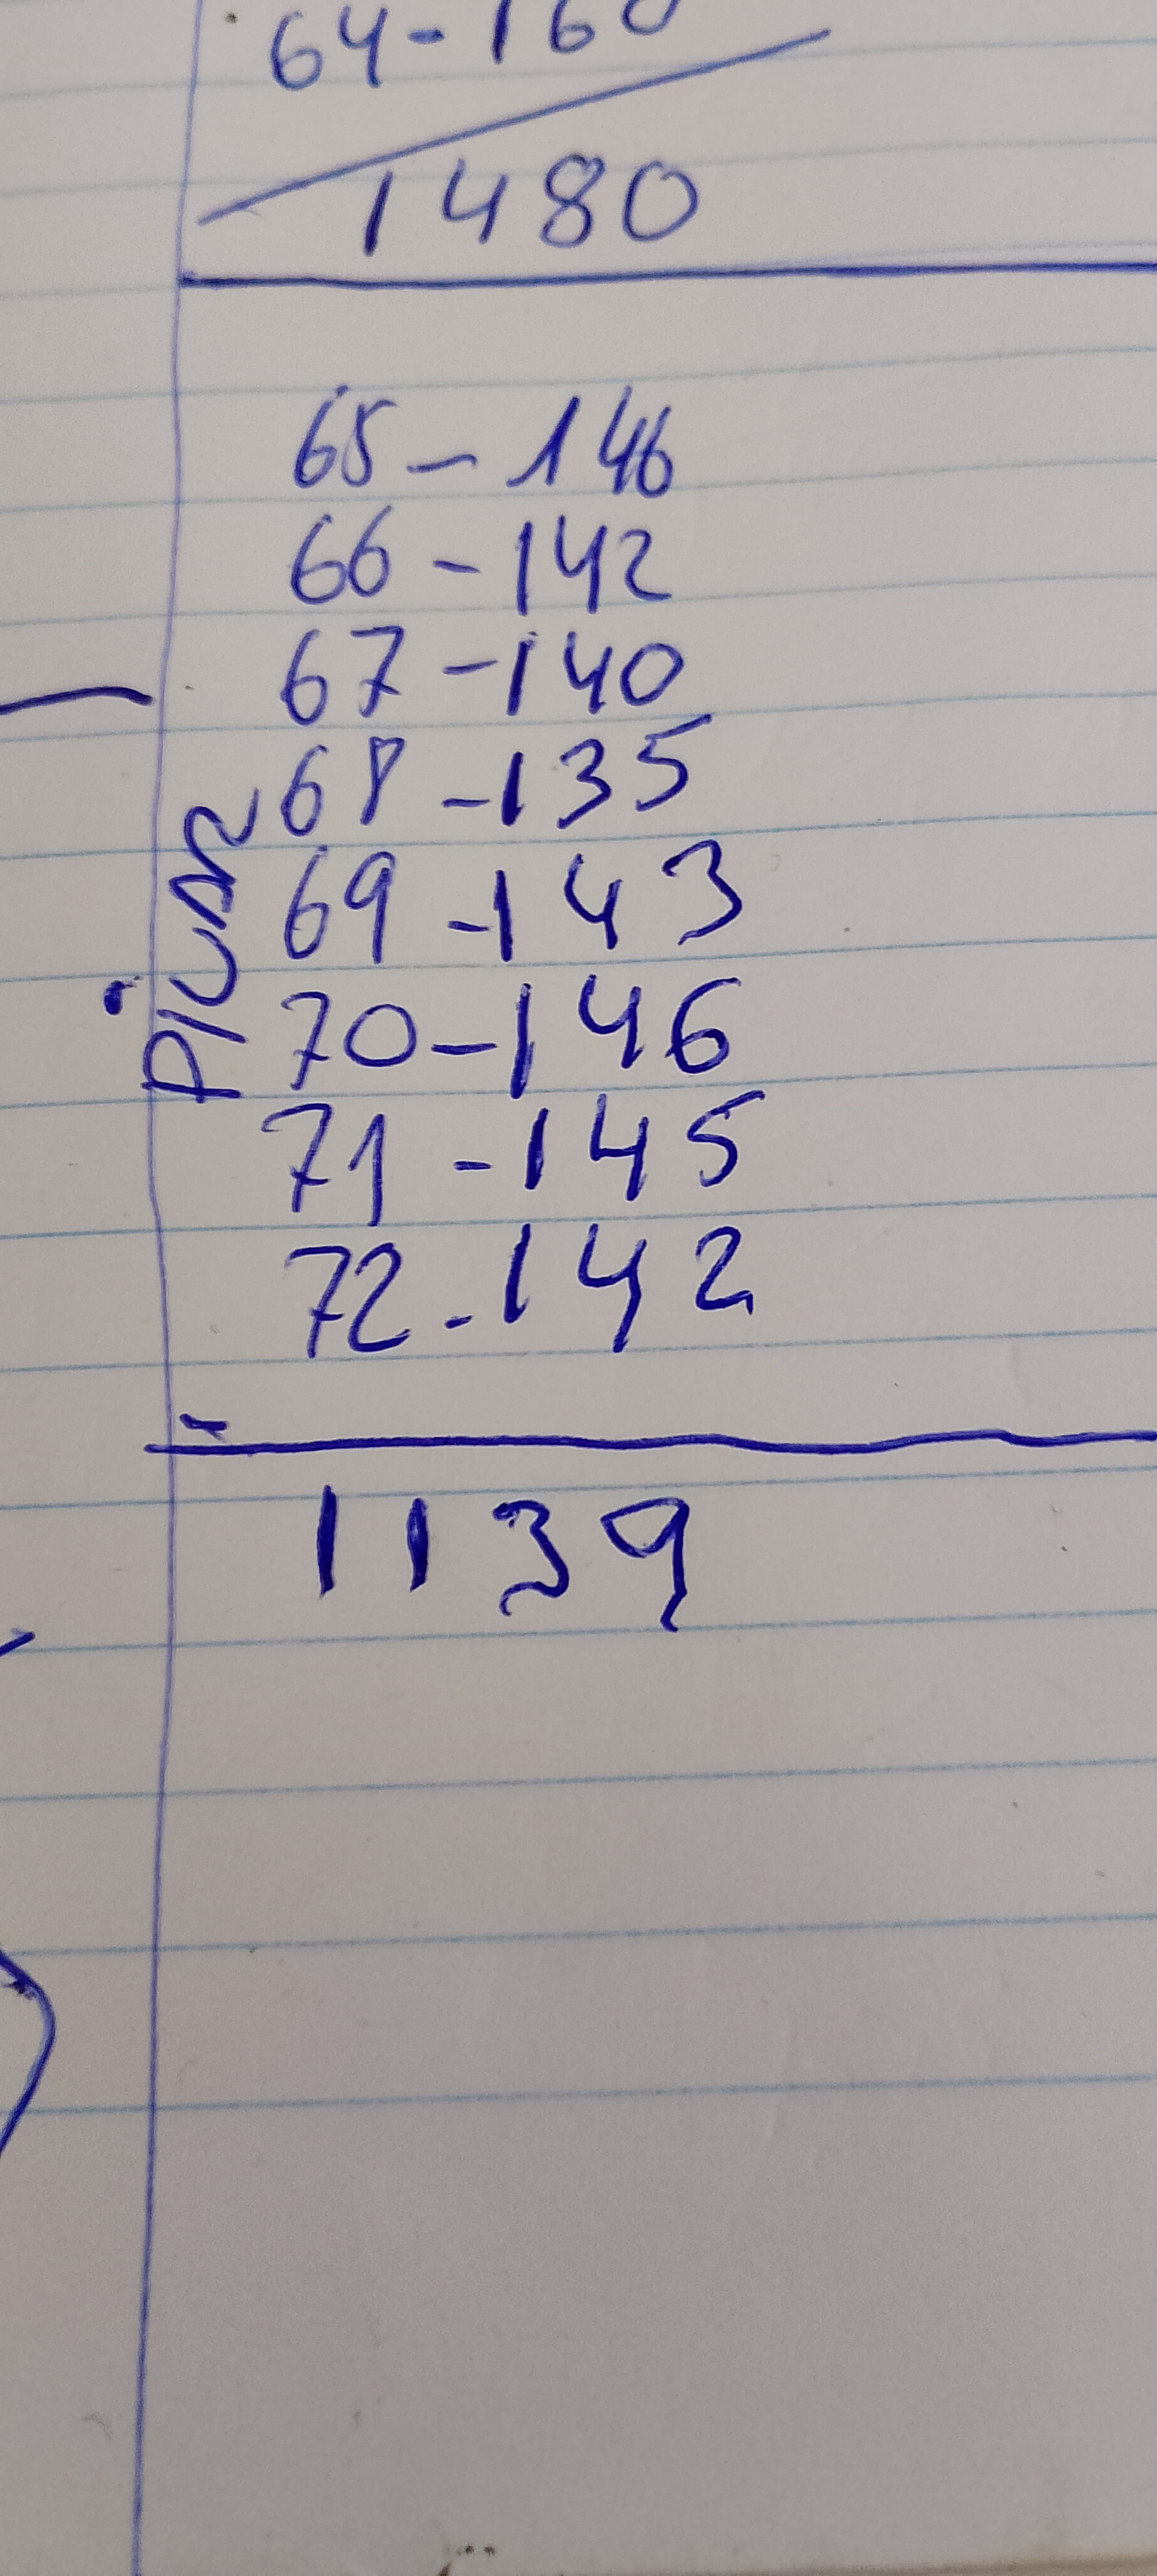 64-160
1480
65-146
66-142
67-140
68-135
69-143
70-146
71-145
72-142
1139